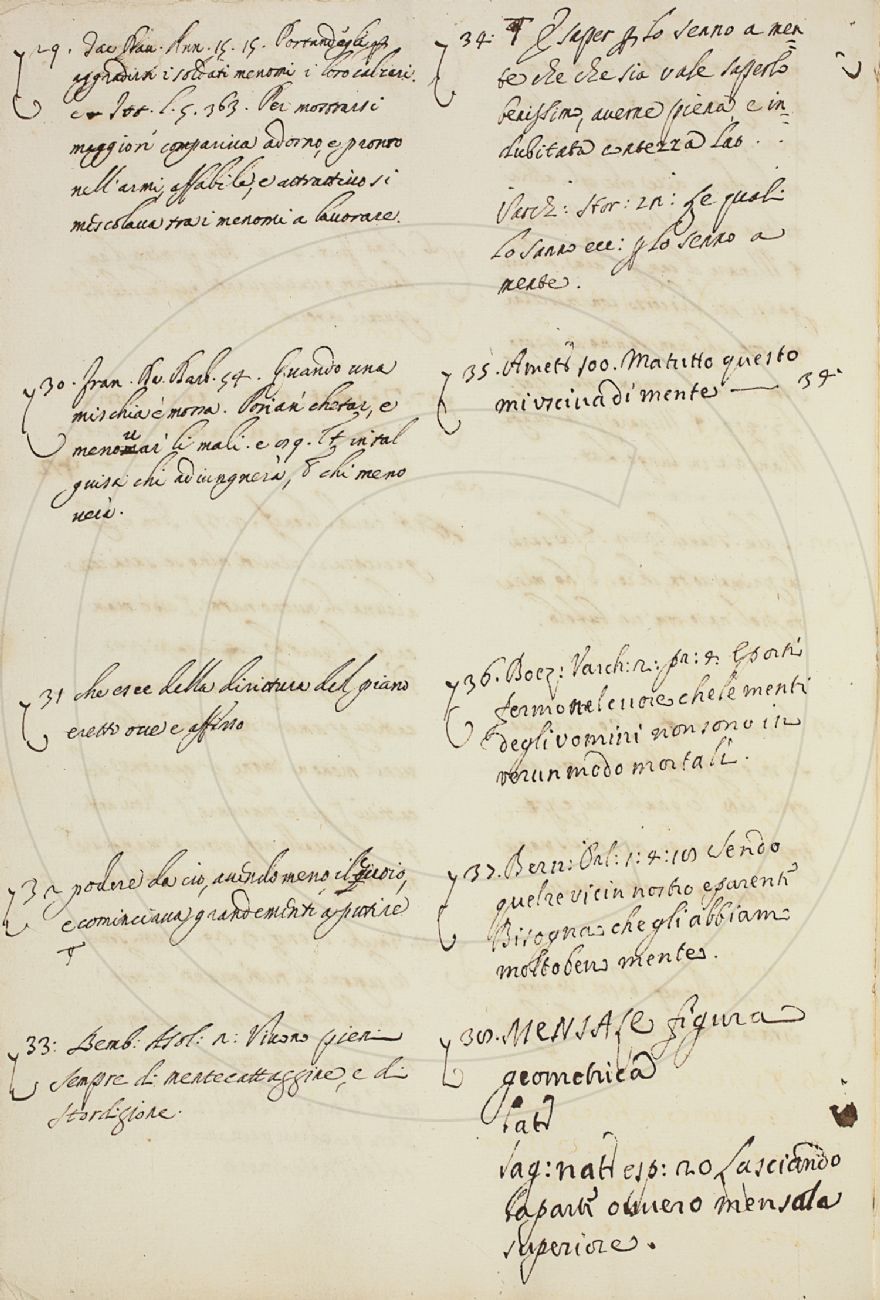 29. Tac. Dav. Ann. 15. 15. Portando
aggradirsi i soldati menomi i loro calzari.
e Tor. l. 5. 363. Per mostrarsi
maggiori compariva adorno, e pronto
nell'armi, affabile, e attrattivo si
mescolava tra i menomi a lavorare.
30. Fran. Barb. 54. Quando una
mischia è mossa. Porian chetar, e
menovar li mali. e in tal
guisa chi adiungnerà, o chi meno
verà.
31 che esce della dirittura del piano
eretto ove e affisso
32 podere da ciò, avendo meno il quoio,
e cominciava grandemente a putire
T
33: Bemb: Asol: 2: Vivono pieni
sempre di mentecattaggine, e di
stordigione.
34: T § saper p lo senno a men=
te che che sia vale saperlo
benissimo, averne piena, e in=
dubitata contezza Lat . :
Varch: Stor: 2n: Le quali
lo sanno ecc: p lo senno a
mente.
35. Amet: 100. Ma tutto questo
mi usciva di mente — 34.
36. Boez: Varch: 2: pr: 4. E porti
fermo nel cuore che le menti
degli vomini non sono in
verun modo mortali.
37. Bern: Orl: 1: 4: 18 Sendo
quel re vicin nostro e parente
Bisogna che gli abbiamo
molto ben mente.
38. MENSALE figura
geometrica
Lat:
Sag: nat: esp: 20 Lasciando
la parte ovvero mensala
superiore.